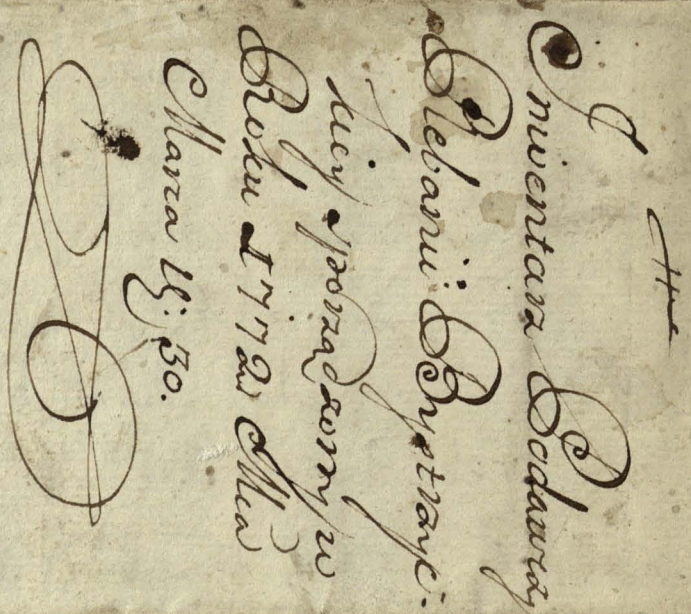 Inwentarz Podawczy
Plebanii Bystrzyc-
kiey sporządzony w
Roku 1772 Mca
Marca
30.